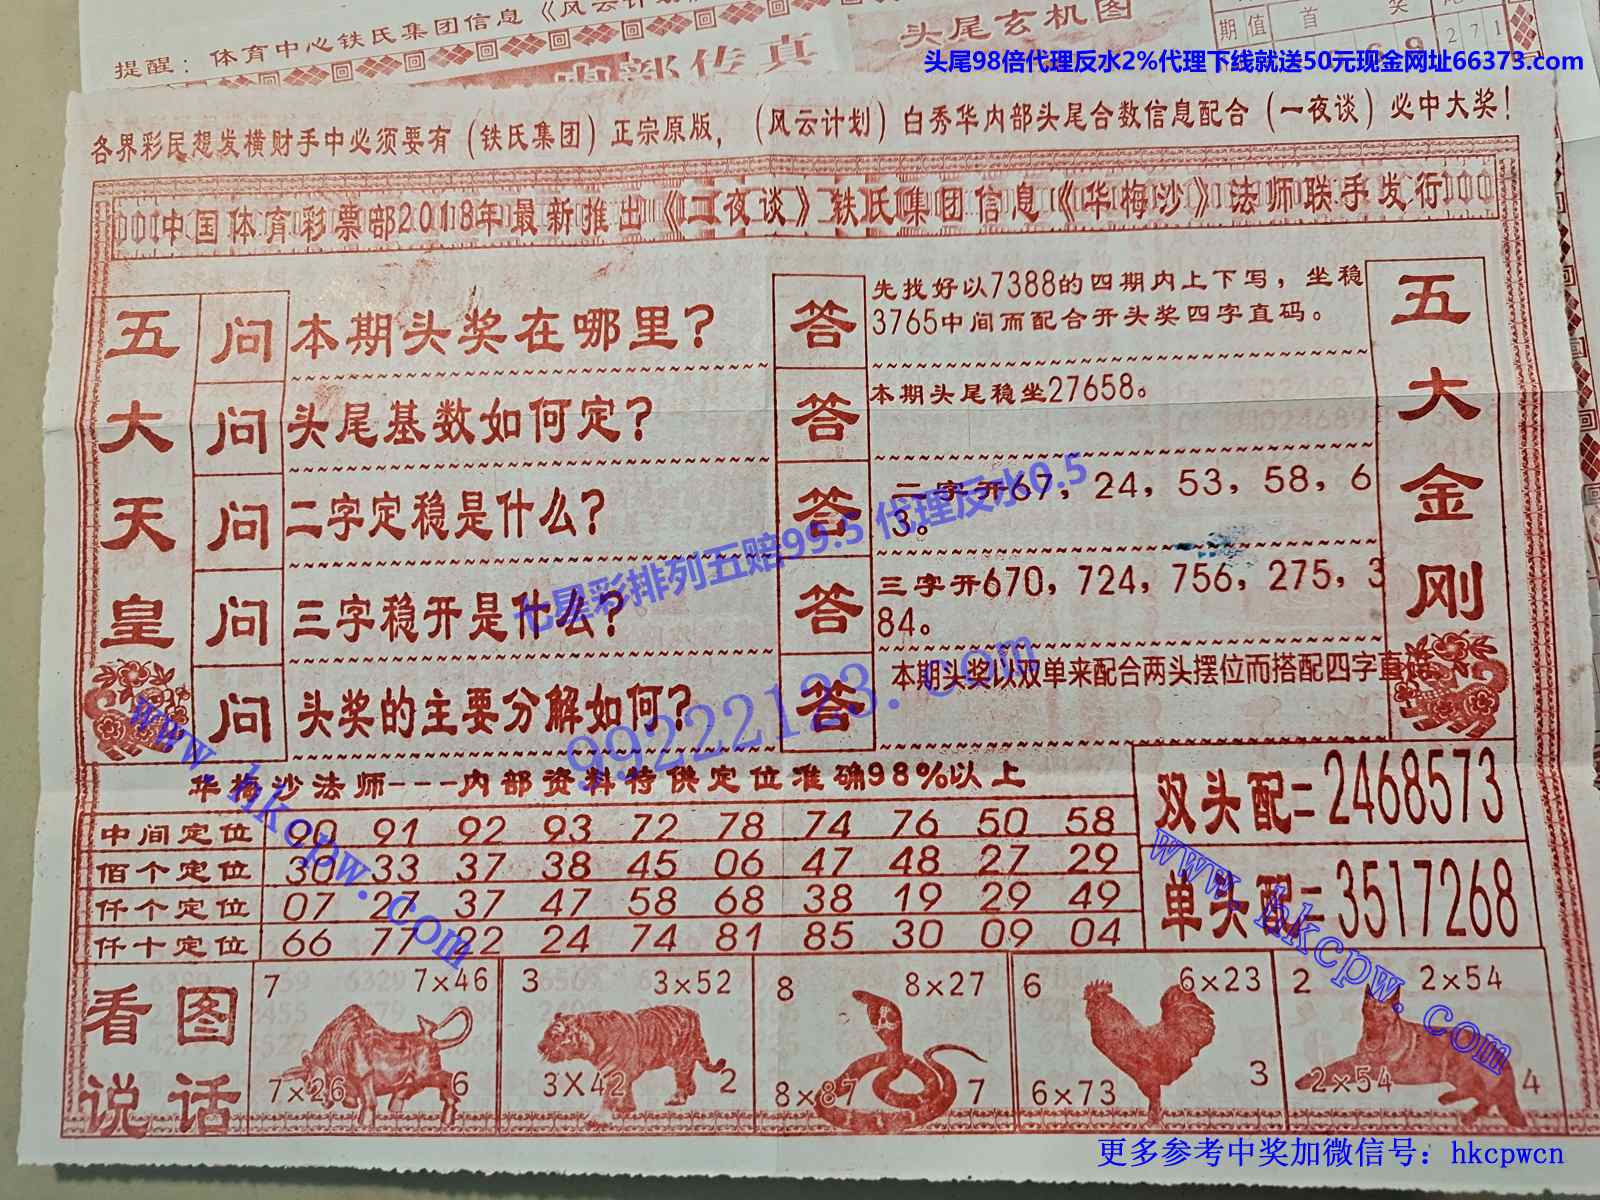 提醒：体育中心铁氏集团信息《风云计划
内部传真
头尾玄机图
期值首奖
271
头尾98倍代理反水2%代理下线就送50元现金网址66373.com
各界彩民想发横财手中必须要有（铁氏集团）正宗原版，（风云计划）白秀华内部头尾合数信息配合（一夜谈）必中大奖！
中国体育彩票部2018年最新推出《二夜谈》铁氏集团信息《华梅沙》法师联手发行
五大天皇
问 本期头奖在哪里？
答 先找好以7388的四期内上下写，坐稳
3765中间而配合开头奖四字直码。
问 头尾基数如何定？
答 本期头尾稳坐27658。
问 二字定稳是什么？
答 二字开67，24，53，58，6
3。
问 三字稳开是什么？
答 三字开670，724，756，275，3
84。
问 头奖的主要分解如何？
答 本期头奖以双单来配合两头摆位而搭配四字直
五大金刚
七星彩排列五赔99.5 代理反水0.5
99222123.com
www.hkcpw.com
华梅沙法师---内部资料特供定位准确98%以上
中间定位 90 91 92 93 72 78 74 76 50 58
佰个定位 30 33 37 38 45 06 47 48 27 29
仟个定位 07 27 37 47 58 68 38 19 29 49
仟十定位 66 77 22 24 74 81 85 30 09 04
双头配=2468573
单头配=3517268
www.hkcpw.com
看图说话
7 7×46
7×26 6
3 3×52
3X42 2
8 8×27
8×87 7
6 6×23
6×73 3
2 2×54
2×54 4
更多参考中奖加微信号：hkcpwcn